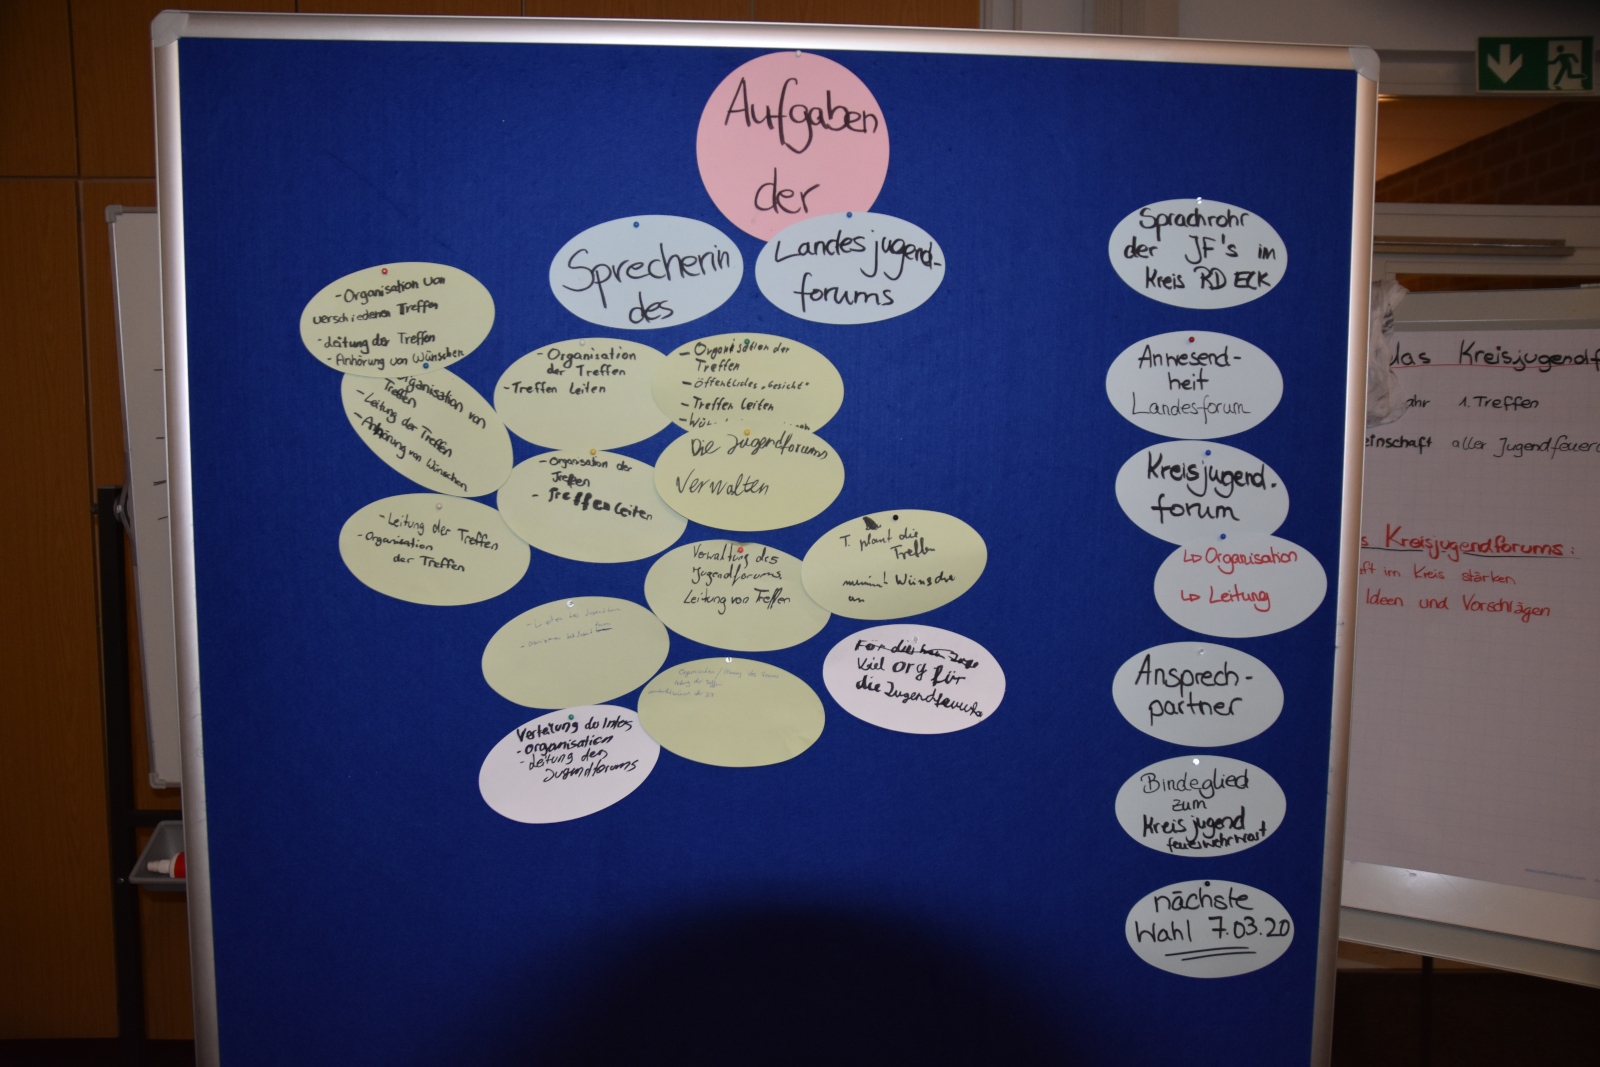 Aufgaben
der
Sprecherin
des
Landesjugend-
forums
- Organisation von
verschiedenen Treffen
- Leitung der Treffen
- Anhörung von Wünschen
Organisation von
Treffen
- Leitung der Treffen
- Anhörung von Wünschen
- Organisation
der Treffen
- Treffen Leiten
- Organisation der
Treffen
- Öffentliches "Gesicht"
- Treffen Leiten
- Organisation der
Treffen
- Treffen Leiten
Die Jugendforums
Verwalten
- Leitung der Treffen
- Organisation
der Treffen
Verwaltung des
Jugendforums
Leitung von Treffen
T. plant die
Treffen
nimmt Wünsche
an
Viel org für
die
Verteilung do Infos
- organisation
- Leitung des
Jugendforums
Sprachrohr
der JF's im
Kreis RD ECK
Anwesend-
heit
Landesforum
Kreisjugend-
forum
↳ Organisation
↳ Leitung
Ansprech-
partner
Bindeglied
zum
Kreisjugend
feuerwehrwart
nächste
Wahl 7.03.20
das Kreisjugendf
ahr 1. Treffen
einschaft aller Jugendfeuer
s Kreisjugendforums:
ft im Kreis stärken
Ideen und Vorschlägen